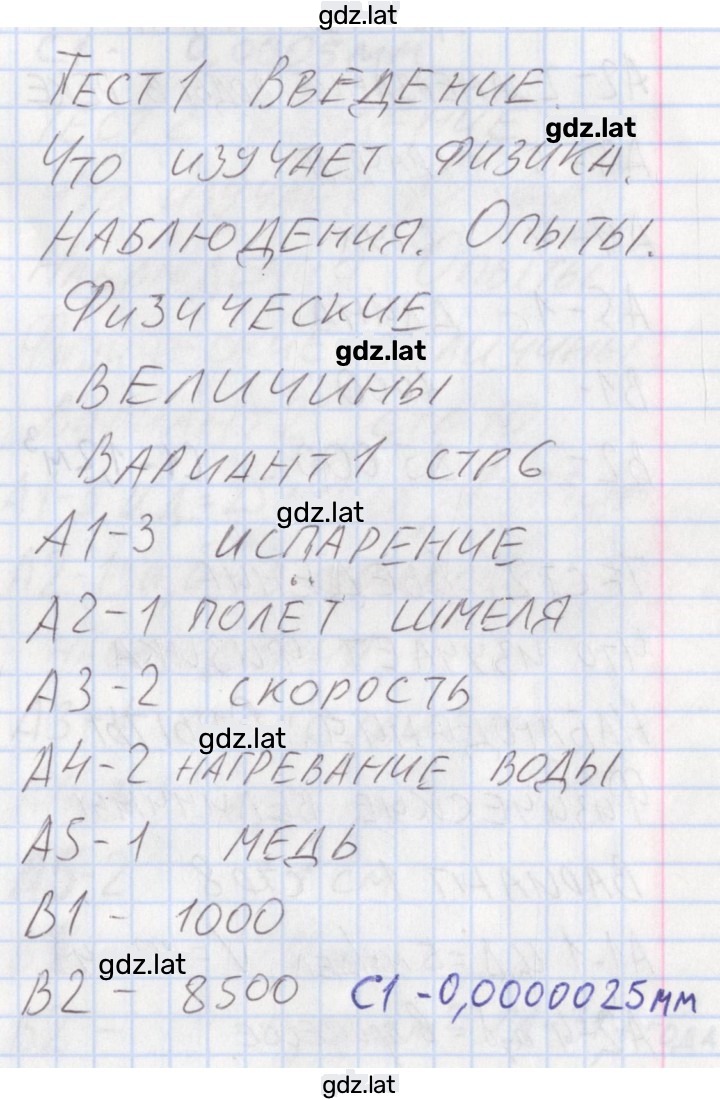 gdz.lat
Тест 1 Введение.
gdz.lat
Что изучает физика.
Наблюдения. Опыты.
Физические
gdz.lat
величины
Вариант 1 стр 6
gdz.lat
А1-3 испарение
А2-1 полёт шмеля
А3-2 скорость
gdz.lat
А4-2 нагревание воды
А5-1 медь
В1 - 1000
gdz.lat
В2 - 8500 С1 -0,0000025мм
gdz.lat